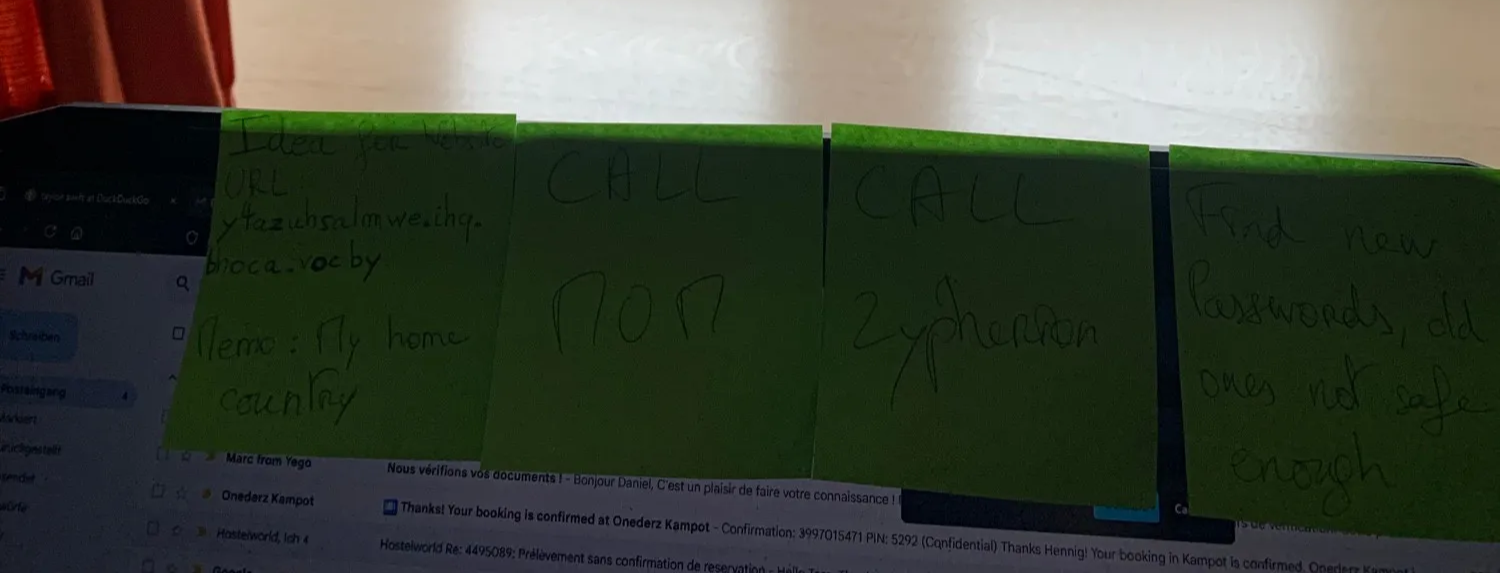 Idea for Website
URL
y4azuhsalmwe.ihq.
bhoca.vocby
Memo: My home
country
CALL
MOM
CALL
Zypherion
Find new
Passwords, old
ones not safe
enough
at DuckDuckGo
Gmail
Schreiben
Posteingang 4
Markiert
Marc from Yego
Nous vérifions vos documents ! - Bonjour Daniel, C'est un plaisir de faire votre connaissance !
Onederz Kampot
Thanks! Your booking is confirmed at Onederz Kampot - Confirmation: 3997015471 PIN: 5292 (Confidential) Thanks Hennig! Your booking in Kampot is confirmed. Onederz Kampot
Hostelworld, Ich 4
Hostelworld Re: 4495089: Prélèvement sans confirmation de reservation
Google